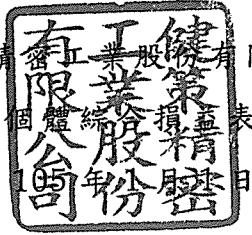 密工業股份有
個體綜合損益表
105年1月1日
健策精密
工業股份
有限公司